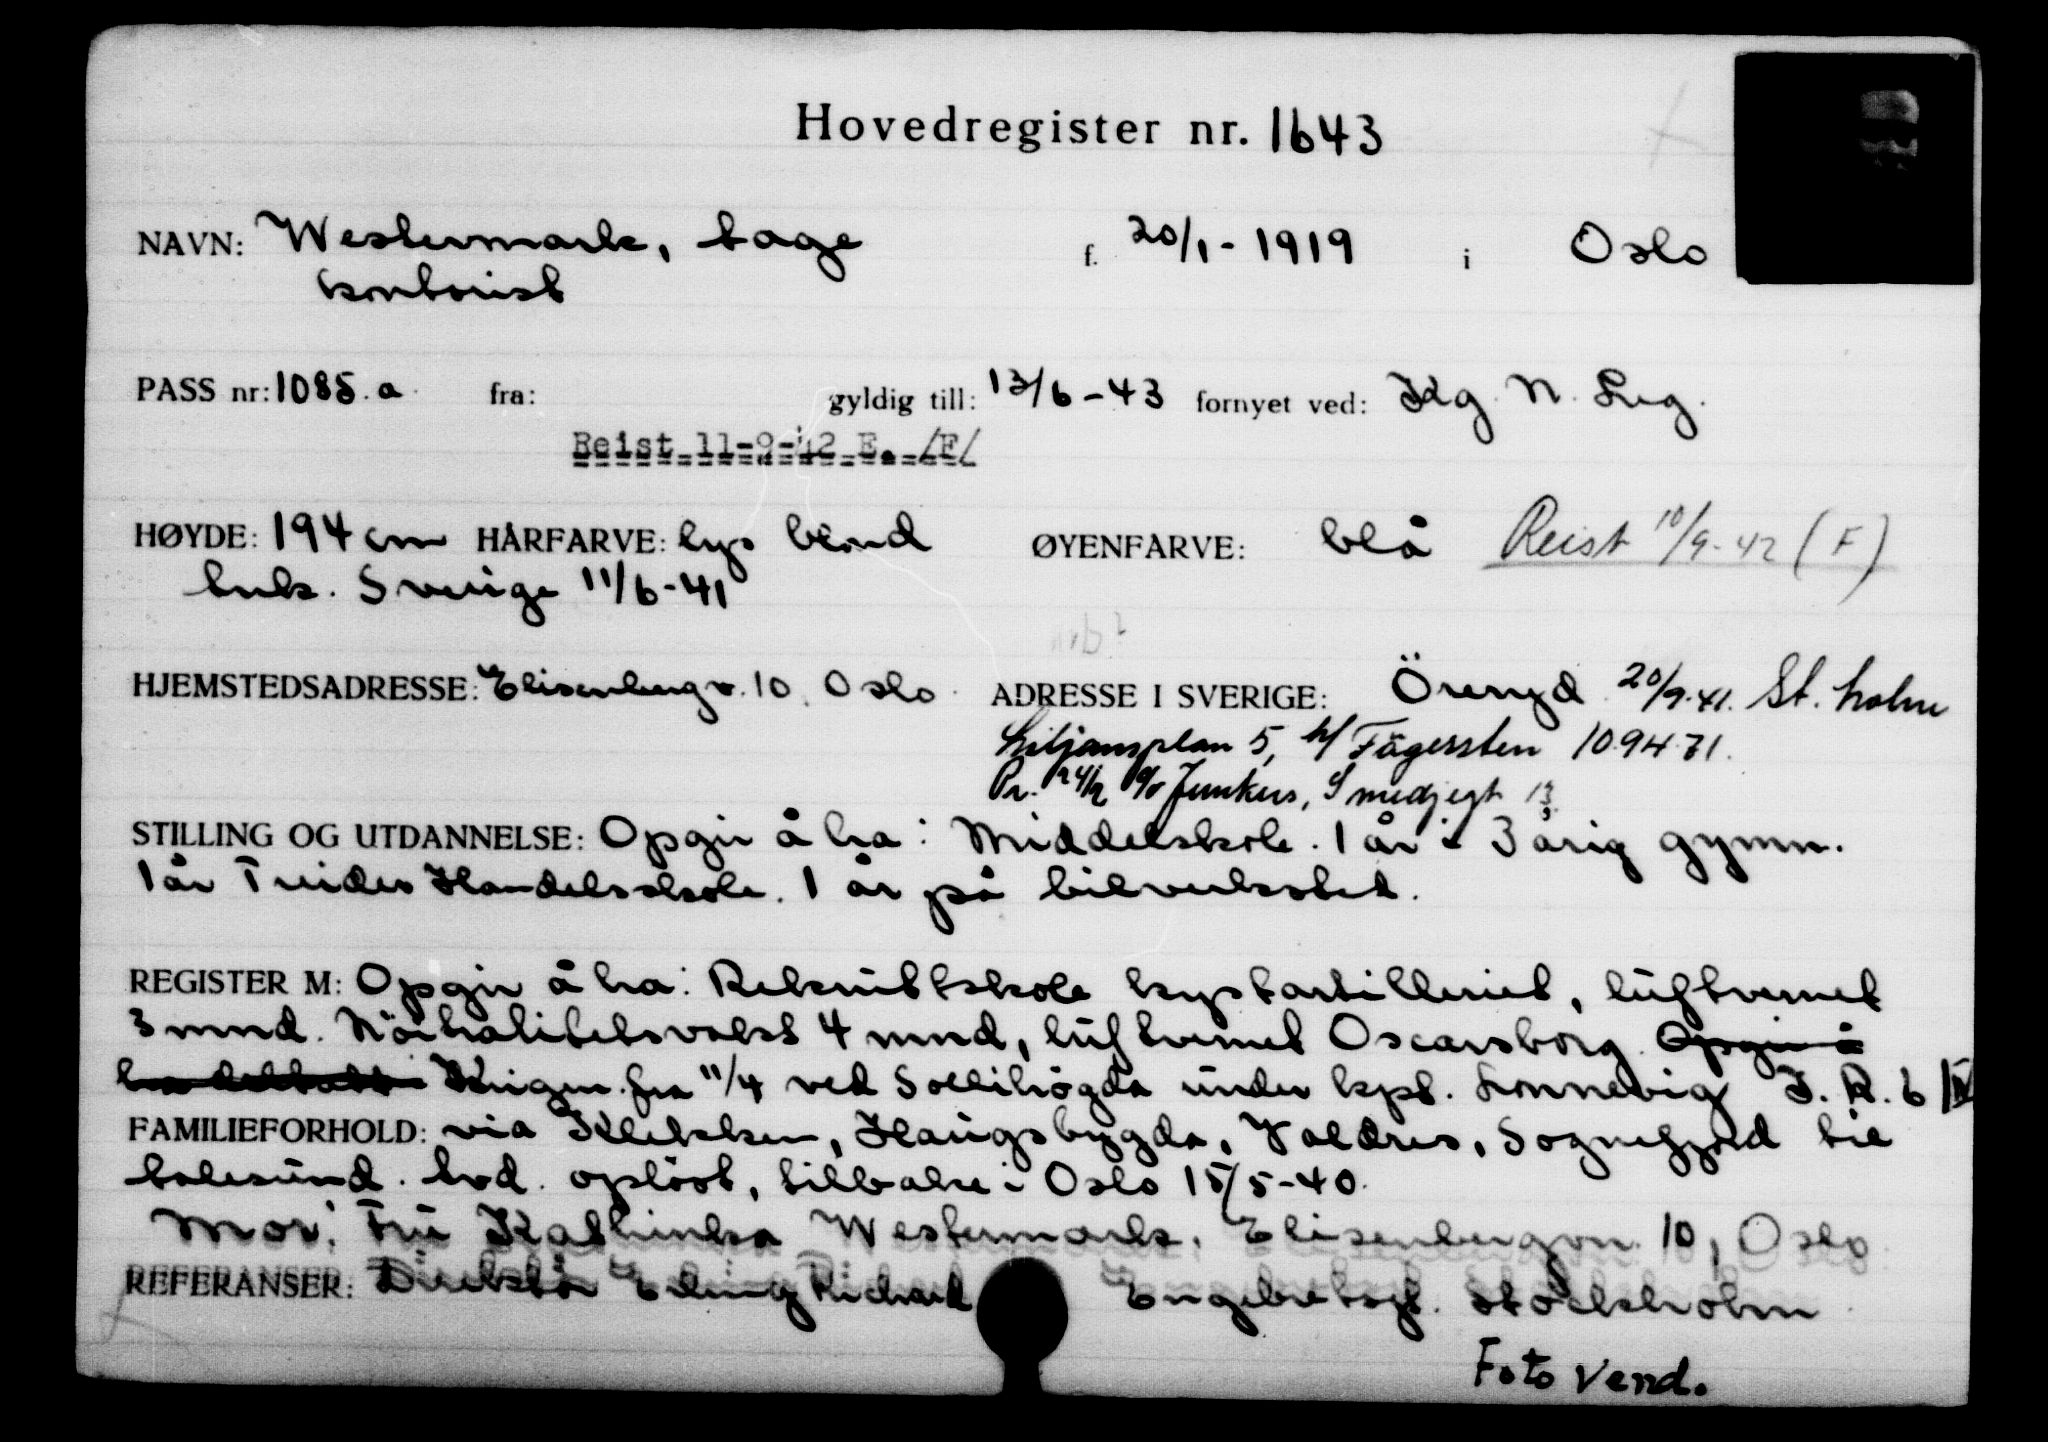 Hovedregister nr. 1643
NAVN: Westermark, Tage f. 20/1-1919 i Oslo
kontorist
PASS nr: 1085.a fra: gyldig till: 13/6-43 fornyet ved: Kg. N. Leg.
Reist 11-9-42 E. /F/
HØYDE: 194 cm HÅRFARVE: lys blond ØYENFARVE: blå Reist 10/9-42 (F)
Ank. Sverige 11/6-41
HJEMSTEDSADRESSE: Elisenbergv. 10. Oslo. ADRESSE I SVERIGE: Öreryd 20/9.41. St. holm
Liljansplan 5, h/ Fägersten 10 94 71.
Pr. 24/2 c/o Junkers, Smedjegt 13
STILLING OG UTDANNELSE: Opgir å ha: Middelskole. 1 år i 3 årig gymn.
1 år Treiders Handelsskole. 1 år på bilverksted.
REGISTER M: Opgir å ha: Rekruttskole kystartilleriet, luftvernet
3 mnd. Nöitralitetsvakt 4 mnd, luftvernet Oscarsborg. Opgir å
ha deltatt i Krigen. fra 11/4 ved Sollihögda under kpt. Linnevig I. R. 6 IV
FAMILIEFORHOLD: via Klekken, Haugsbygda, Valdres, Sognefjord til
Ålesund. Avd. oplöst, tilbake i Oslo 15/5-40.
Mor: Fru Kathinka Westermark. Elisenbergvn. 10, Oslo.
REFERANSER: Direktör Erling Richard Engebretsgt. Stockholm.
Foto Vend.